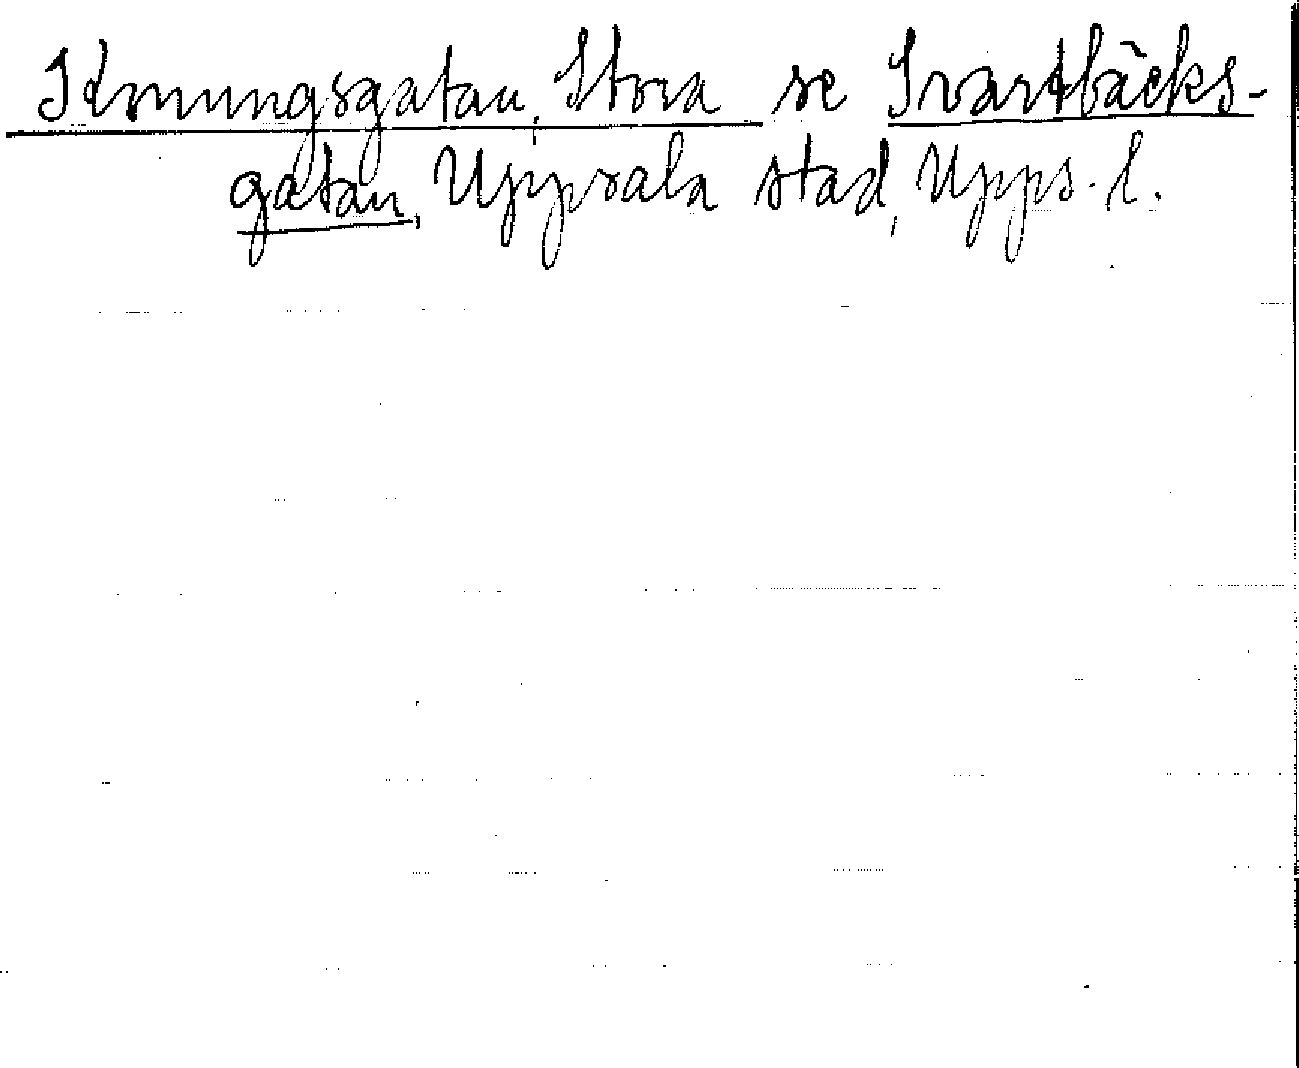 Konungsgatan, Stora se Svartbäcks-
gatan, Uppsala stad, Upps. l.